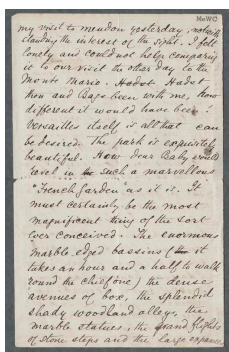 MeWC
my visit to Meudon yesterday, notwith
standing the interest of the sight. I felt
lonely and could not help comparing
it to our visit the other day to the
Monte Mario. Hadst
thou and Bags been with me, how
different it would have been!
Versailles itself is all that can
be desired. The park is exquisitely
beautiful. How dear Baby would
revel in such a marvellous
"French garden" as it is. It
must certainly be the most
magnificent thing of the sort
ever conceived. The enormous
marble edged bassins (it
takes an hour and a half to walk
round the chief one) the dense
avenues of box, the splendid
shady woodland alleys, the
marble statues, the grand flights
of stone steps and the large expanse